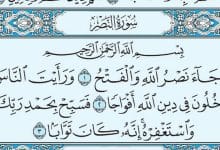 سُورَةُ النَّصْرِ
بِسْمِ اللَّهِ الرَّحْمَٰنِ الرَّحِيمِ
جَآءَ نَصْرُ اللَّهِ وَالْفَتْحُ ١ وَرَأَيْتَ النَّاسَ
خُلُونَ فِي دِينِ اللَّهِ أَفْوَاجًا ٢ فَسَبِّحْ بِحَمْدِ رَبِّكَ
وَاسْتَغْفِرْهُ إِنَّهُ كَانَ تَوَّابًا ٣